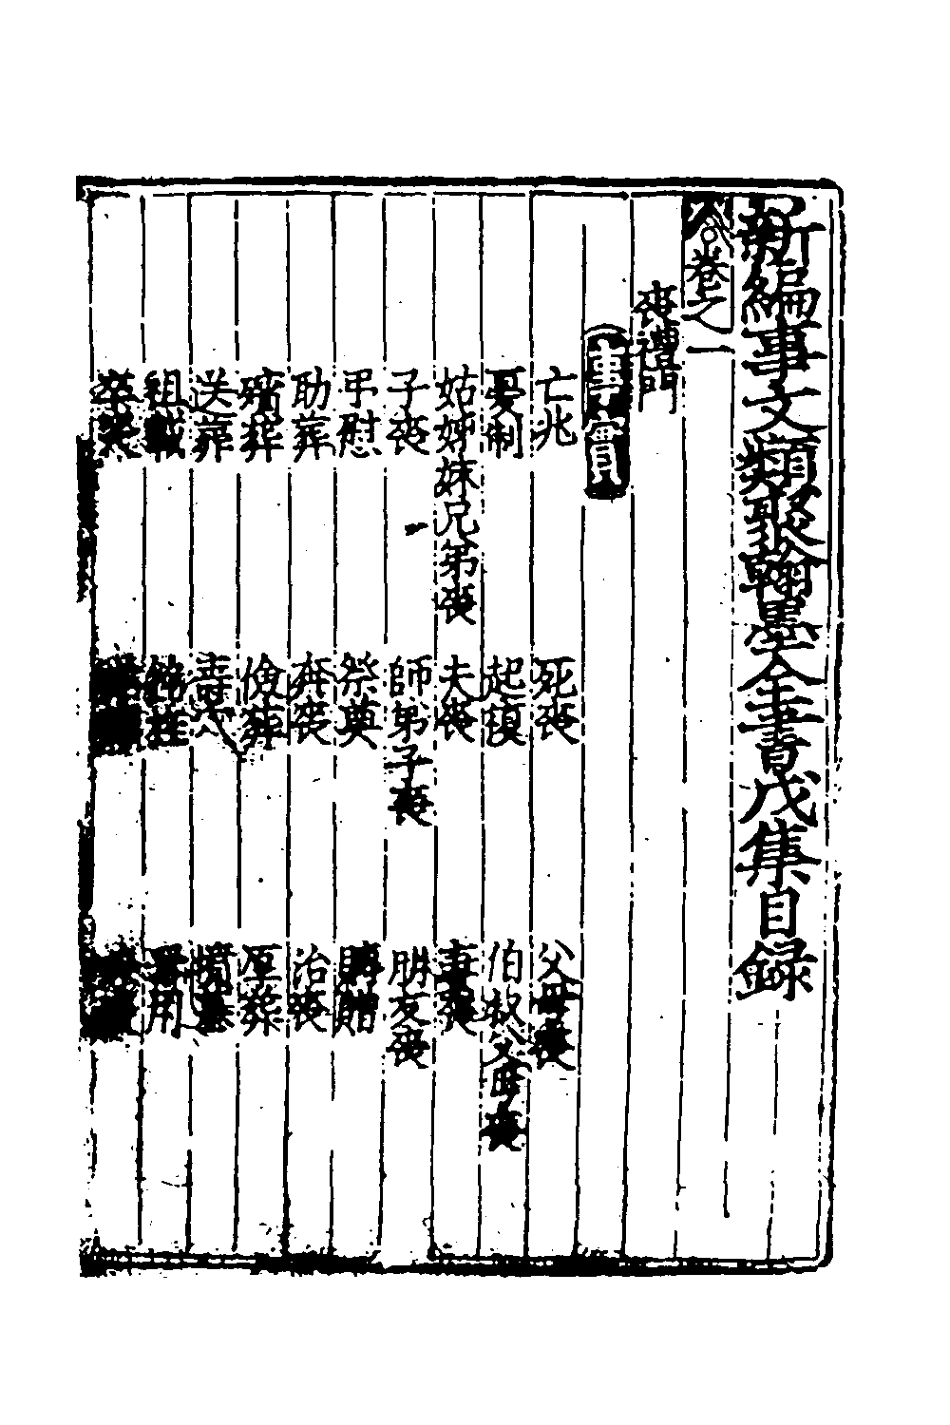 新編事文類聚翰墨全書戊集目錄
卷之一
喪禮門
事實
亡兆 死喪 父母喪
憂制 起復 伯叔父母喪
姑姊妹兄弟喪 夫喪 妻喪
子喪 師弟子喪 朋友喪
弔慰 祭奠 賻賵
助葬 奔喪 治喪
殯葬 儉葬 厚葬
送葬 壽穴 墳墓
祖載 銘旌
卒哭